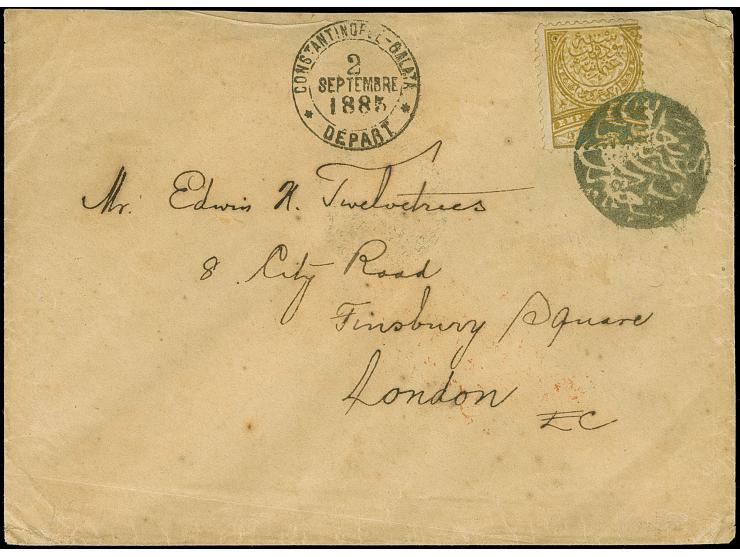 CONSTANTINOPLE-GALATA
2
SEPTEMBRE
1885
* DÉPART *
EMP.
Mr. Edwin H. Twelvetrees
8. City Road
Finsbury Square
London
EC